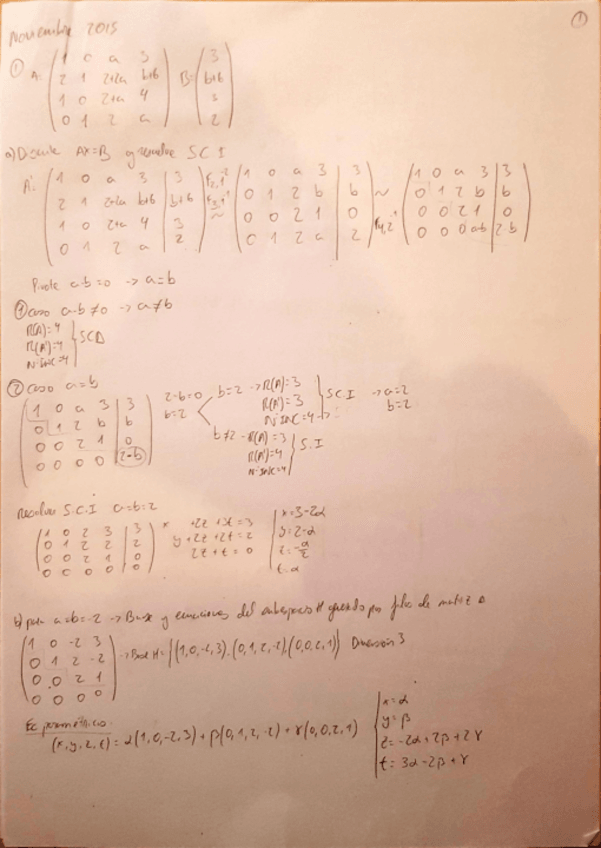 Noviembre 2015
①
① A= (1 0 a 3 / 2 1 2+2a b+6 / 1 0 2+a 4 / 0 1 2 a) B= (3 / b+6 / 3 / 2)
a) Discute AX=B y resolver S.C.I
A': (1 0 a 3 | 3 / 2 1 2+2a b+6 | b+6 / 1 0 2+a 4 | 3 / 0 1 2 a | 2) ~ (1 0 a 3 | 3 / 0 1 2 b | b / 0 0 2 1 | 0 / 0 1 2 a | 2) ~ (1 0 a 3 | 3 / 0 1 2 b | b / 0 0 2 1 | 0 / 0 0 0 a-b | 2-b)
Pivote a-b=0 → a=b
① caso a-b≠0 → a≠b
R(A)=4
R(A')=4 } SCD
Nº INC=4
② caso a=b
(1 0 a 3 | 3 / 0 1 2 b | b / 0 0 2 1 | 0 / 0 0 0 0 | 2-b)
2-b=0
b=2
b=2 → R(A)=3
R(A')=3 } S.C.I → a=2
Nº INC=4 b=2
b≠2 - R(A)=3
R(A')=4 } S.I
Nº INC=4
Resolver S.C.I a=b=2
(1 0 2 3 | 3 / 0 1 2 2 | 2 / 0 0 2 1 | 0 / 0 0 0 0 | 0)
x +2z +3t = 3
y +2z +2t = 2
2z + t = 0
x=3-2α
y=2-α
z=-α/2
t=α
b) para a=b=-2 → Base y ecuaciones del subespacio H generado por filas de matriz A
(1 0 -2 3 / 0 1 2 -2 / 0 0 2 1 / 0 0 0 0) → Base H= {(1,0,-2,3),(0,1,2,-2),(0,0,2,1)} Dimensión 3
Ec paramétricas
(x,y,z,t) = α(1,0,-2,3) + β(0,1,2,-2) + γ(0,0,2,1)
x=α
y=β
z=-2α+2β+2γ
t=3α-2β+γ